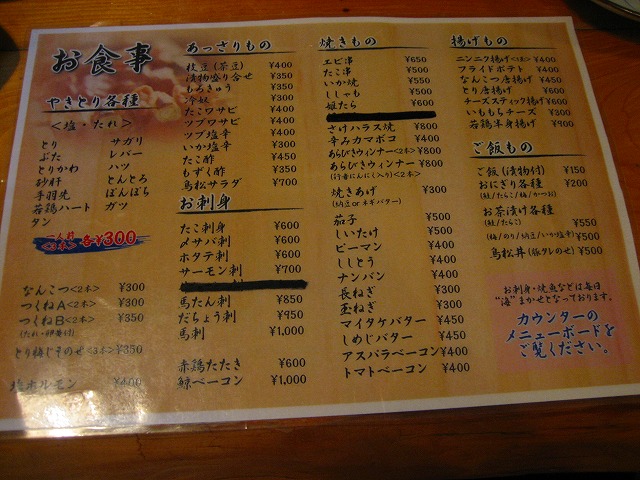 お食事
やきとり各種
<塩・たれ>
とり サガリ
ぶた レバー
とりかわ ハツ
砂肝 とんとろ
手羽先 ぼんぼち
若鶏ハート ガツ
タン
一人前<3本> 各¥300
なんこつ<2本> ¥300
つくねA<2本> ¥300
つくねB<2本> ¥350
(たれ・卵黄付)
とり梅じそのせ<3本> ¥350
塩ホルモン ¥400
あっさりもの
枝豆(茶豆) ¥400
漬物盛り合せ ¥350
もろきゅう ¥350
冷奴 ¥300
たこワサビ ¥400
ツブワサビ ¥400
ツブ塩辛 ¥400
いか塩辛 ¥300
たこ酢 ¥450
もずく酢 ¥350
鳥松サラダ ¥700
お刺身
たこ刺身 ¥600
〆サバ刺 ¥600
ホタテ刺 ¥600
サーモン刺 ¥700
馬たん刺 ¥850
だちょう刺 ¥950
馬刺 ¥1,000
赤鶏たたき ¥600
鯨ベーコン ¥1,000
焼きもの
エビ串 ¥650
たこ串 ¥500
いか焼 ¥550
ししゃも ¥500
姫たら ¥600
さけハラス焼 ¥800
辛みカマボコ ¥400
あらびきウィンナー<2本> ¥800
あらびきウィンナー ¥800
(行者にんにく入り)<2本>
焼きあげ ¥300
(納豆 or ネギバター)
茄子 ¥500
しいたけ ¥500
ピーマン ¥400
ししとう ¥400
ナンバン ¥400
長ねぎ ¥300
玉ねぎ ¥300
マイタケバター ¥450
しめじバター ¥450
アスパラベーコン ¥400
トマトベーコン ¥400
揚げもの
ニンニク揚げ<1本> ¥400
フライドポテト ¥400
なんこつ唐揚げ ¥450
とり唐揚げ ¥600
チーズスティック揚げ ¥600
いももちチーズ ¥300
若鶏半身揚げ ¥900
ご飯もの
ご飯(漬物付) ¥150
おにぎり各種 ¥200
(鮭/たらこ/梅/かつお)
お茶漬け各種
(鮭/たらこ) ¥550
(梅/のり/納豆/いか塩辛) ¥500
鳥松丼(豚タレのせ) ¥500
お刺身・焼魚などは毎日
“海”まかせとなっております。
カウンターの
メニューボードを
ご覧ください。